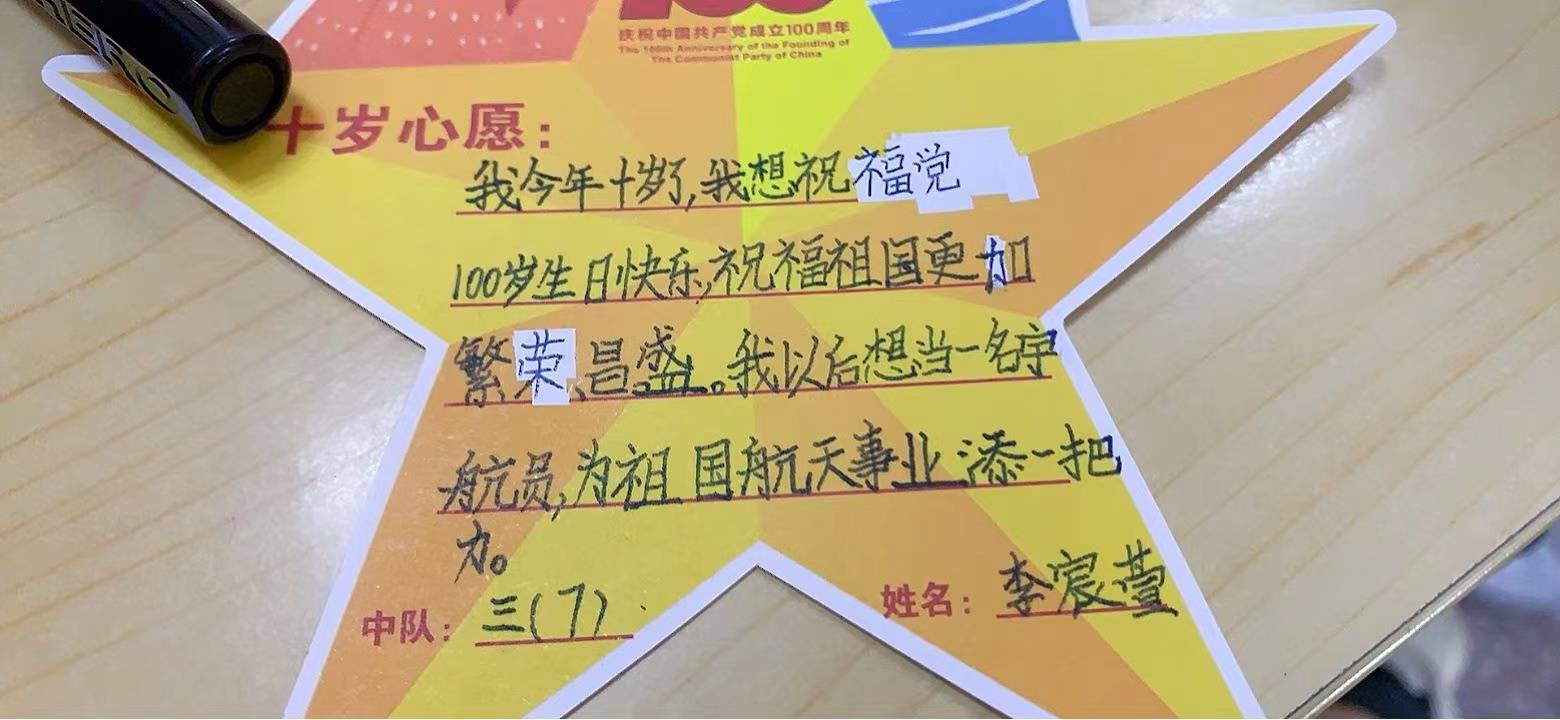 庆祝中国共产党成立100周年
The 100th Anniversary of the Founding of
The Communist Party of China
十岁心愿：
我今年十岁了,我想祝福党
100岁生日快乐,祝福祖国更加
繁荣昌盛。我以后想当一名宇
航员,为祖国航天事业添一把
力。
中队：三(7)
姓名：李宸萱